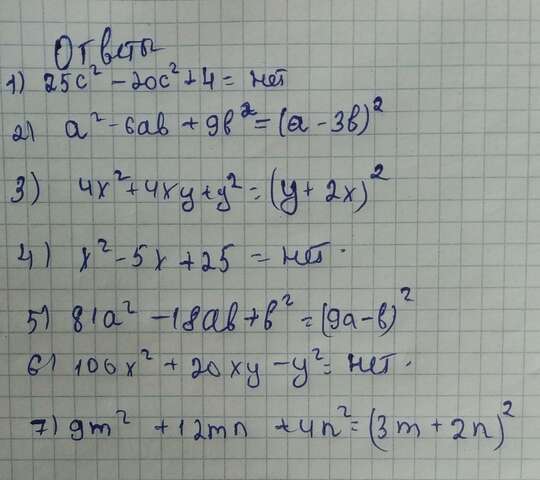 Ответы
1) 25c² - 20c² + 4 = нет
2) a² - 6ab + 9b² = (a - 3b)²
3) 4x² + 4xy + y² = (y + 2x)²
4) x² - 5x + 25 = нет.
5) 81a² - 18ab + b² = (9a - b)²
6) 100x² + 20xy - y² = нет.
7) 9m² + 12mn + 4n² = (3m + 2n)²